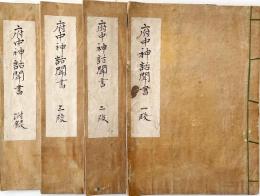 府中神詣聞書 一段
府中神詣聞書 二段
府中神詣聞書 三段
府中神詣聞書 附録